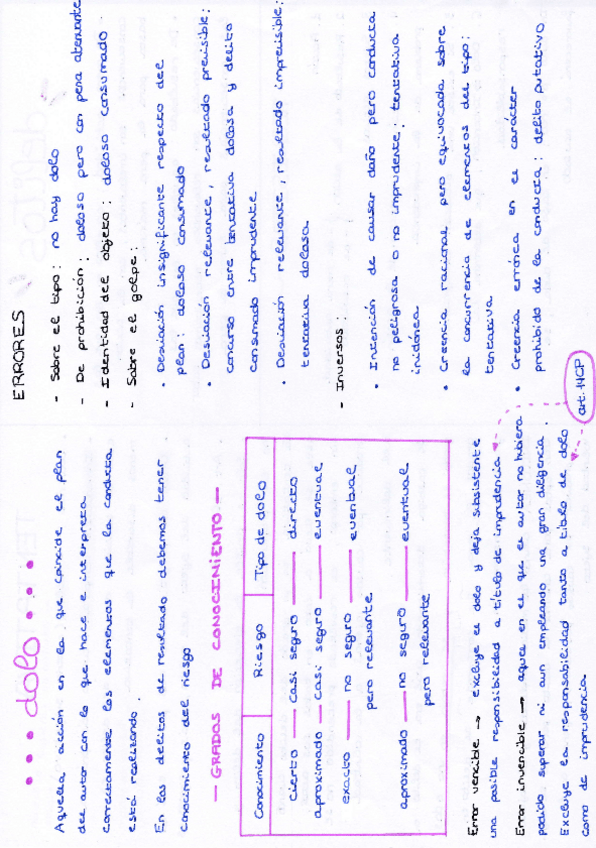 dolo
Aquella acción en la que coincide el plan
del autor con lo que hace e interpreta
correctamente los elementos que la conducta
está realizando.
En los delitos de resultado debemos tener
conocimiento del riesgo
— GRADOS DE CONOCIMIENTO —
Conocimiento Riesgo Tipo de dolo
cierto — casi seguro — directo
aproximado — casi seguro — eventual
exacto — no seguro — eventual
pero relevante
aproximado — no seguro — eventual
pero relevante
Error vencible → excluye el dolo y deja subsistente
una posible responsibilidad a título de imprudencia
Error invencible → aquel en el que el autor no hubiera
podido superar ni aun empleando una gran diligencia.
Excluye la responsabilidad tanto a título de dolo
como de imprudencia.
art. 14CP
ERRORES
- Sobre el tipo: no hay dolo
- De prohibición: doloso pero con pena atenuante
- Identidad del objeto: doloso consumado
- Sobre el golpe:
• Desviación insignificante respecto del
plan: doloso consumado
• Desviación relevante, resultado previsible:
concurso entre tentativa dolosa y delito
consumado imprudente
• Desviación relevante, resultado imprecisible:
tentativa dolosa.
- Inversos:
• Intención de causar daño pero conducta
no peligrosa o no imprudente: tentativa
inidónea.
• Creencia racional pero equivocada sobre
la concurrencia de elementos del tipo:
tentativa
• Creencia errónea en el carácter
prohibido de la conducta: delito putativo